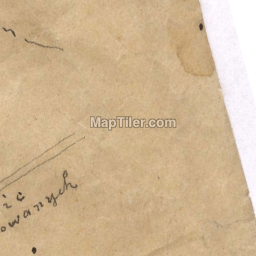 MapTiler.com
ić
owanych